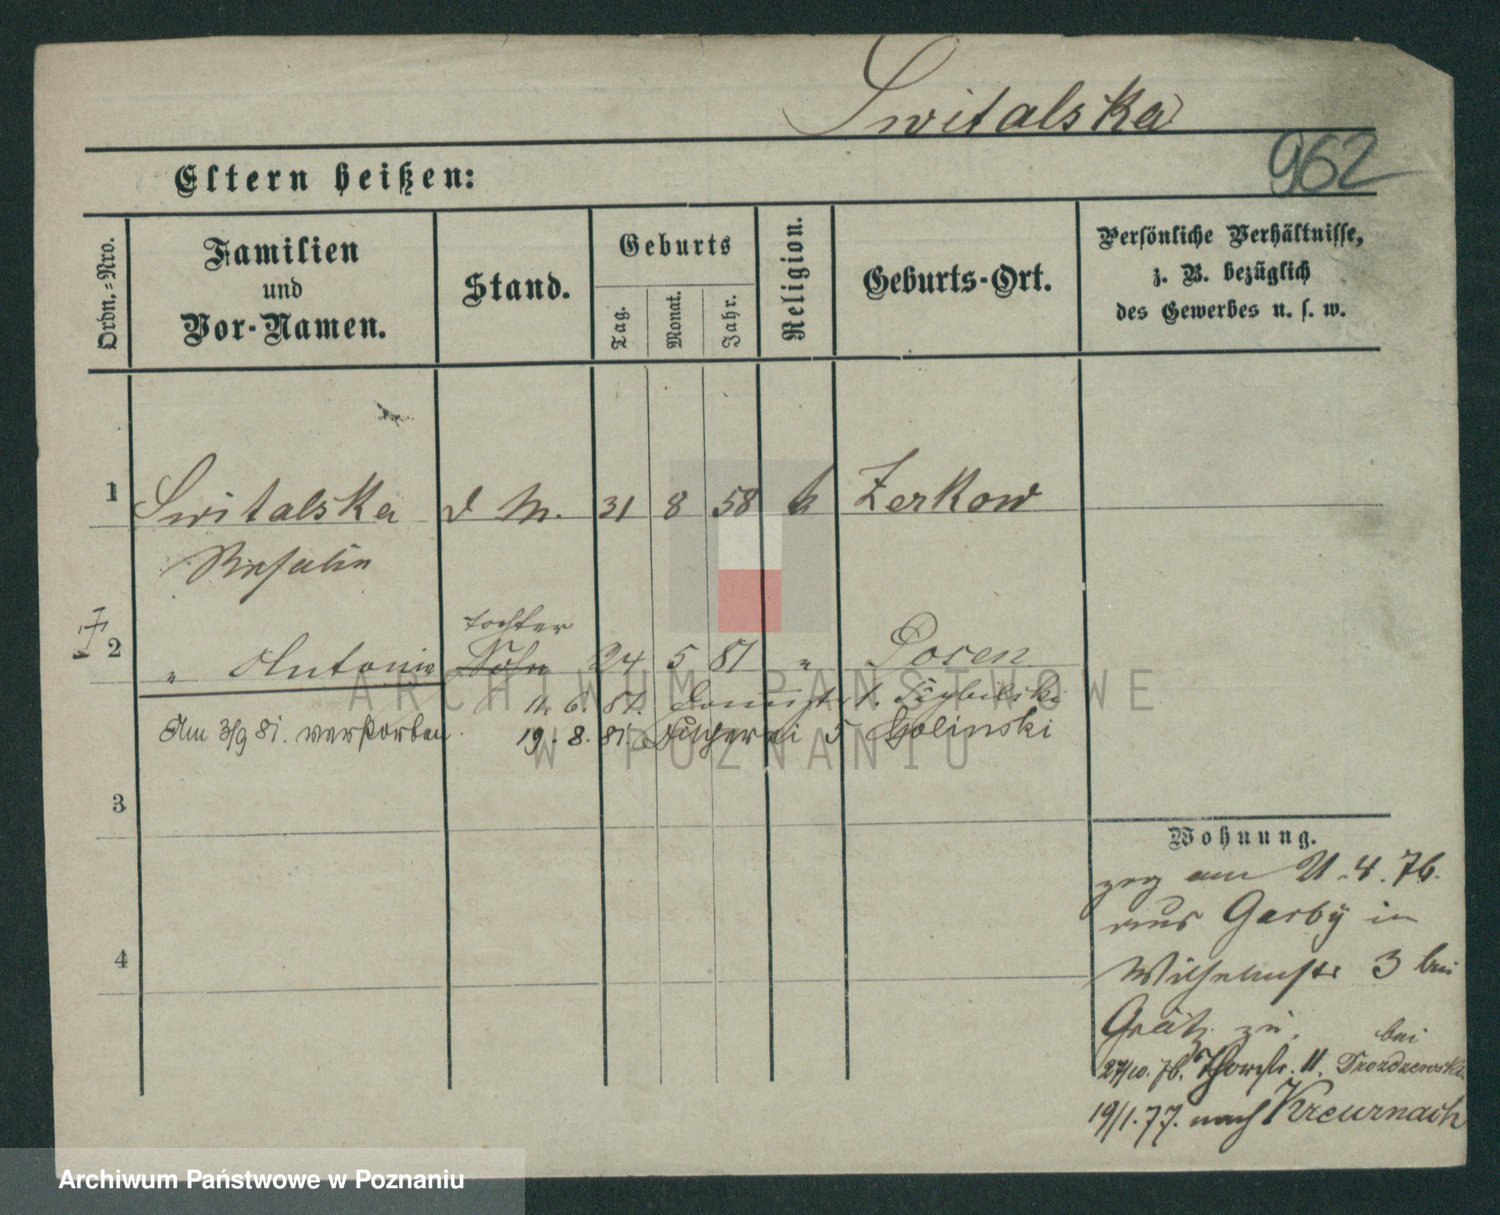 Switalska
962
Eltern heißen:
Ordn.-Nro.
Familien
und
Vor-Namen.
Stand.
Geburts
Tag.
Monat.
Jahr.
Religion.
Geburts-Ort.
Persönliche Verhältnisse,
z. B. bezüglich
des Gewerbes u. s. w.
1 Switalska d M. 31 8 58 k Zerkow
Rosalie
tochter
2 " Antonie Sohn 24 5 81 " Posen
11. 6. 81.
Am 3/9 81. verstorben. 19. 8. 81. Fischerei 5 Golinski
3
4
Wohnung.
zog am 21.4.76.
aus Garby in
Wilhelmstr 3 bei
Grätz zu.
bei
27/10.76. Thorstr. 11. Drozdzewska
19/1.77. nach Kreuznach
ARCHIWUM PAŃSTWOWE
W POZNANIU
Archiwum Państwowe w Poznaniu